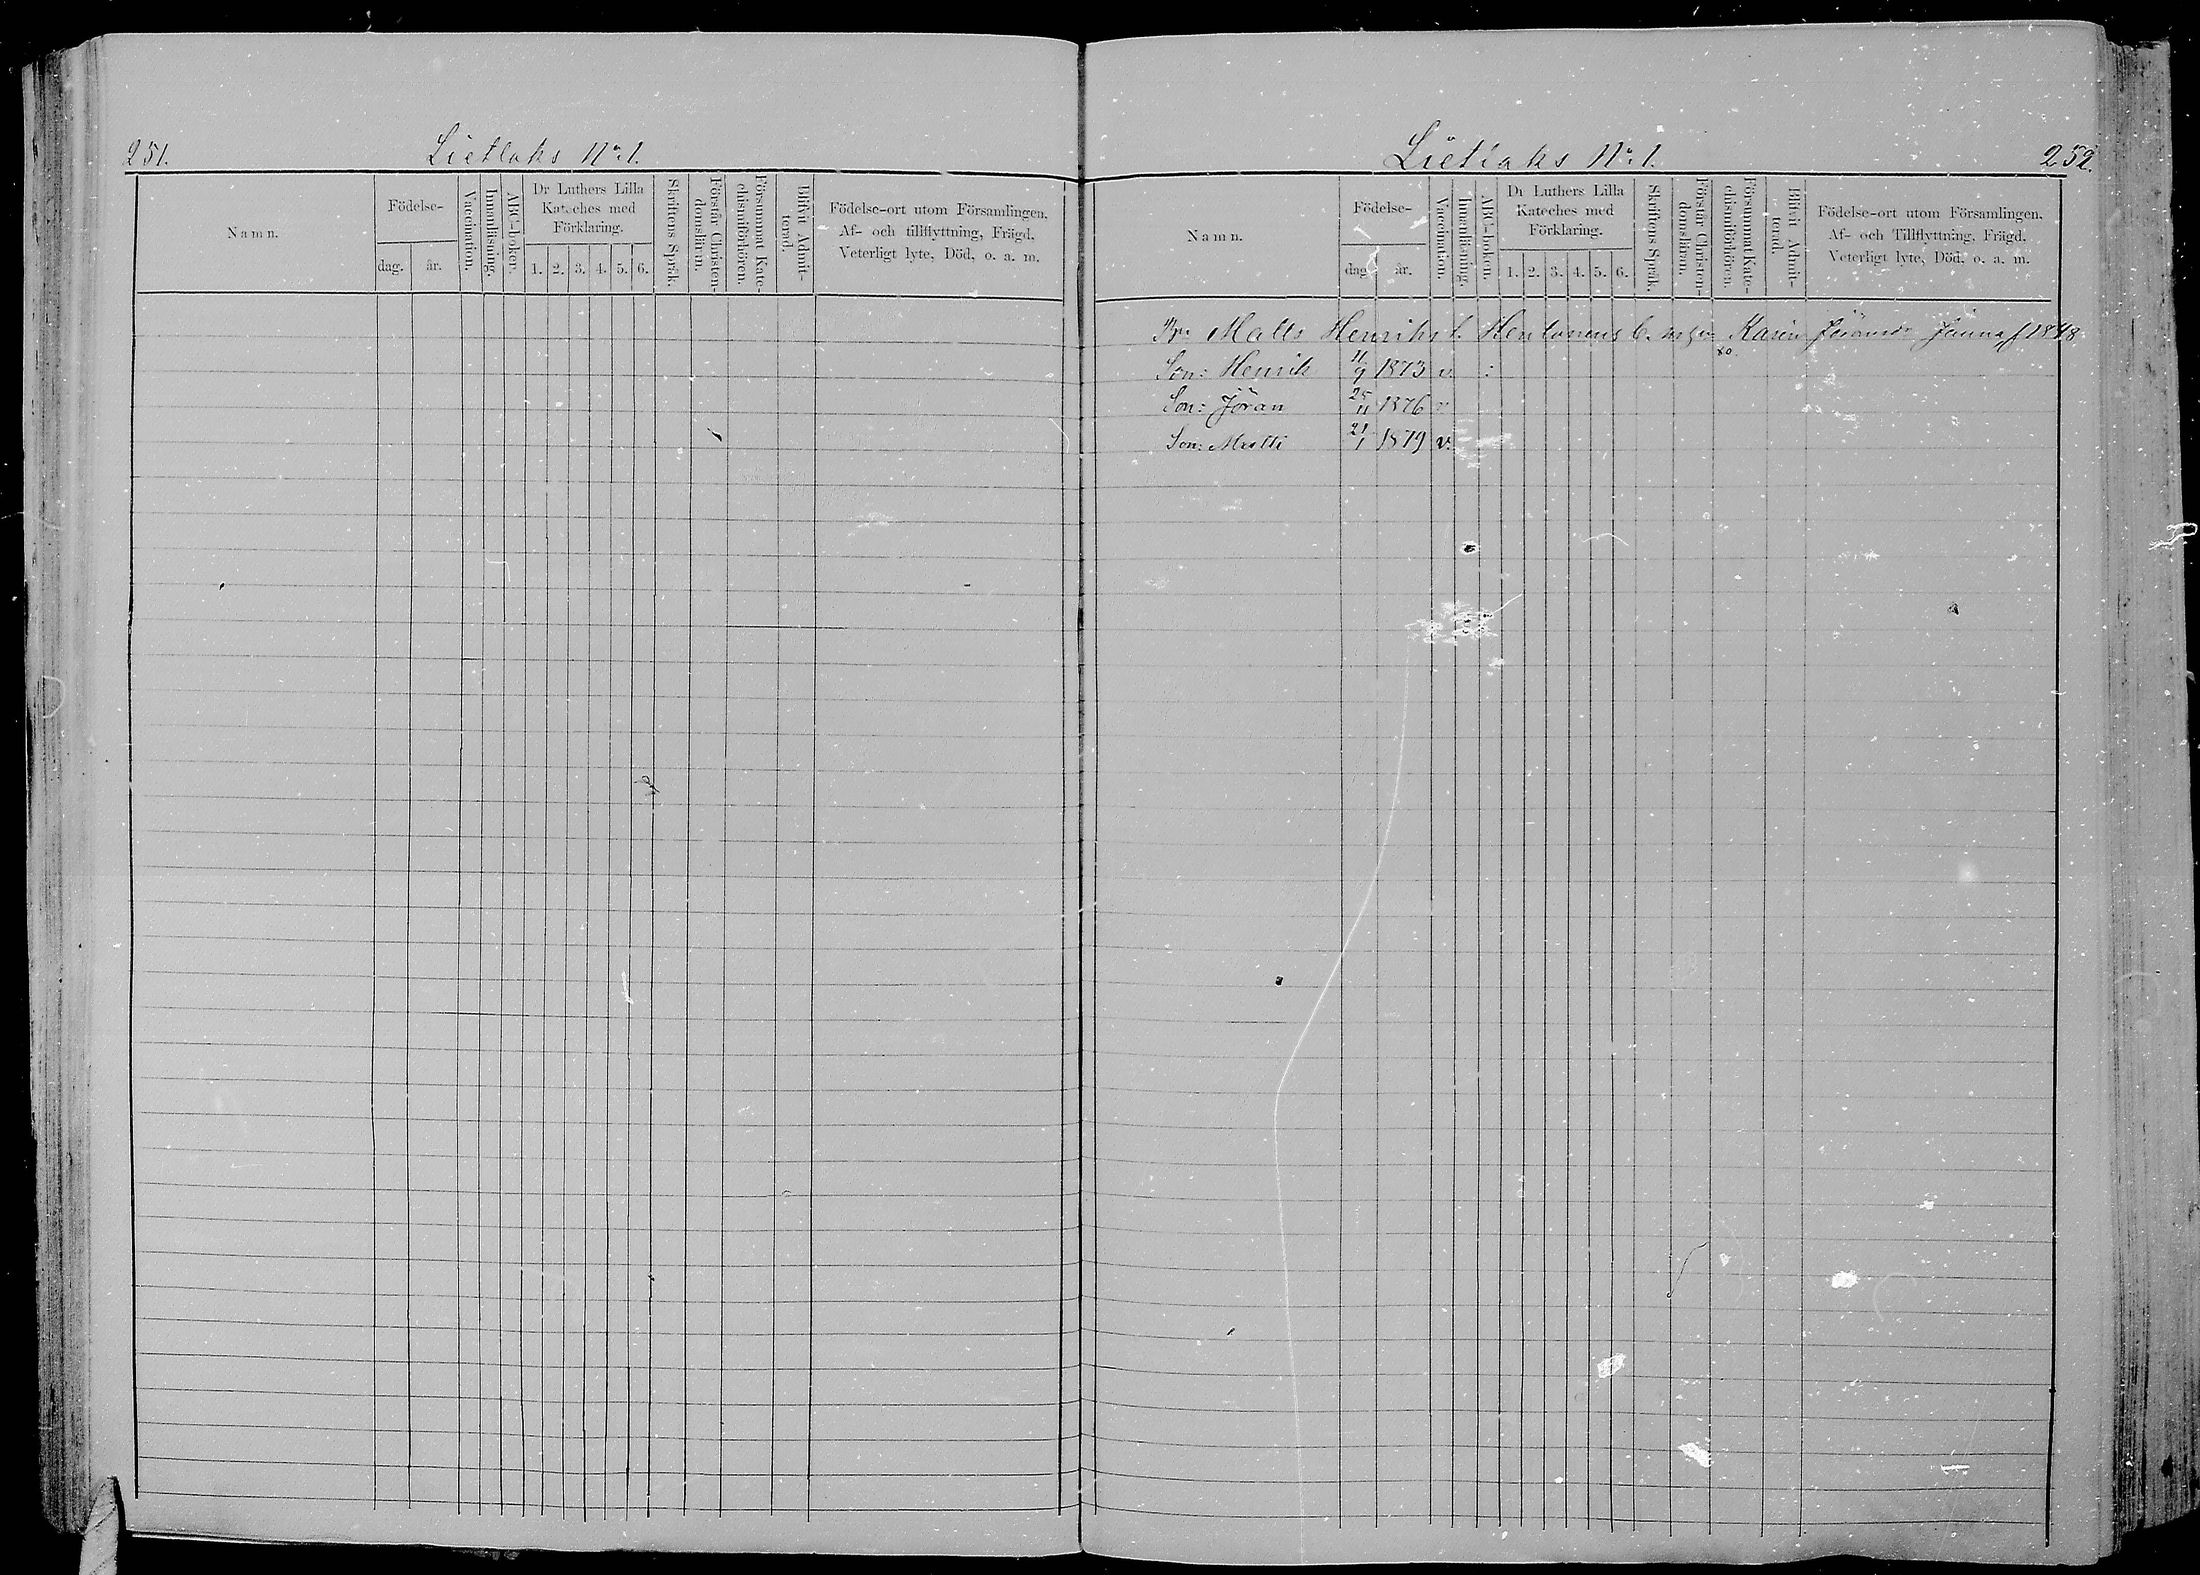 251. Lietlaks No: 1.
Namn.
Födelse-
dag. år.
Vaccination.
Innanläsning.
ABC-boken.
Dr Luthers Lilla
Kateches med
Förklaring.
1. 2. 3. 4. 5. 6.
Skriftens Språk.
Förstår Christen-
domslärun.
Försummat Kate-
chismiförhören.
Blifvit Admit-
terad.
Födelse-ort utom Församlingen,
Af- och tillflyttning, Frägd,
Veterligt lyte, Död, o. a. m.
Lietlaks No: 1. 252.
Namn.
Födelse-
dag. år.
Vaccination.
Innanläsning.
ABC-boken.
Dr Luthers Lilla
Kateches med
Förklaring.
1. 2. 3. 4. 5. 6.
Skriftens Språk.
Förstår Christen-
domsläran.
Försummat Kate-
chismiförhören.
Blifvit Admit-
terad.
Födelse-ort utom Församlingen,
Af- och Tillflyttning, Frägd,
Veterligt lyte, Död, o. a. m.
Matts Henriks Karin 1848
Son: Henrik 11/9 1873 v.
Son: Jöran 25/11 1876 v
Son: Matti 21/1 1879 v.